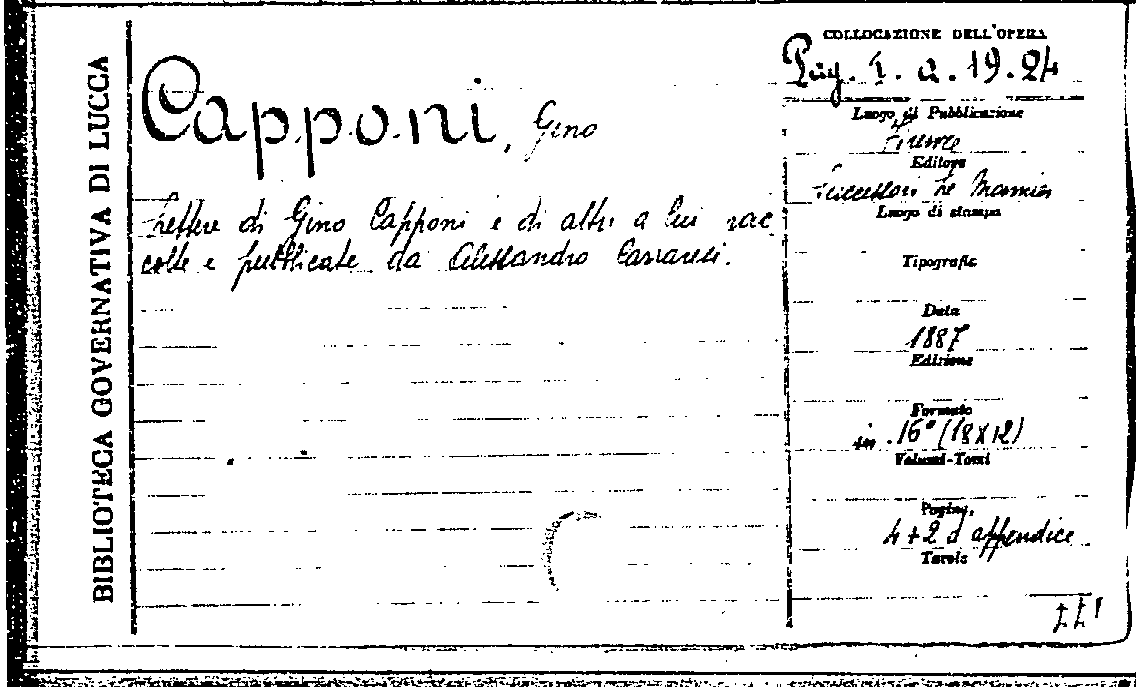 BIBLIOTECA GOVERNATIVA DI LUCCA
Capponi, Gino
Lettere di Gino Capponi e di altri a lui rac
colte e pubblicate da Alessandro Carraresi.
COLLOCAZIONE DELL'OPERA
Pug. I. a. 19. 24
Luogo di Pubblicazione
Firenze
Editore
Successori Le Monnier
Luogo di stampa
Tipografia
Data
1887
Edizione
Formato
in .16° (18X12)
Volumi-Tomi
Pagine
4+2 d'appendice
Tavole